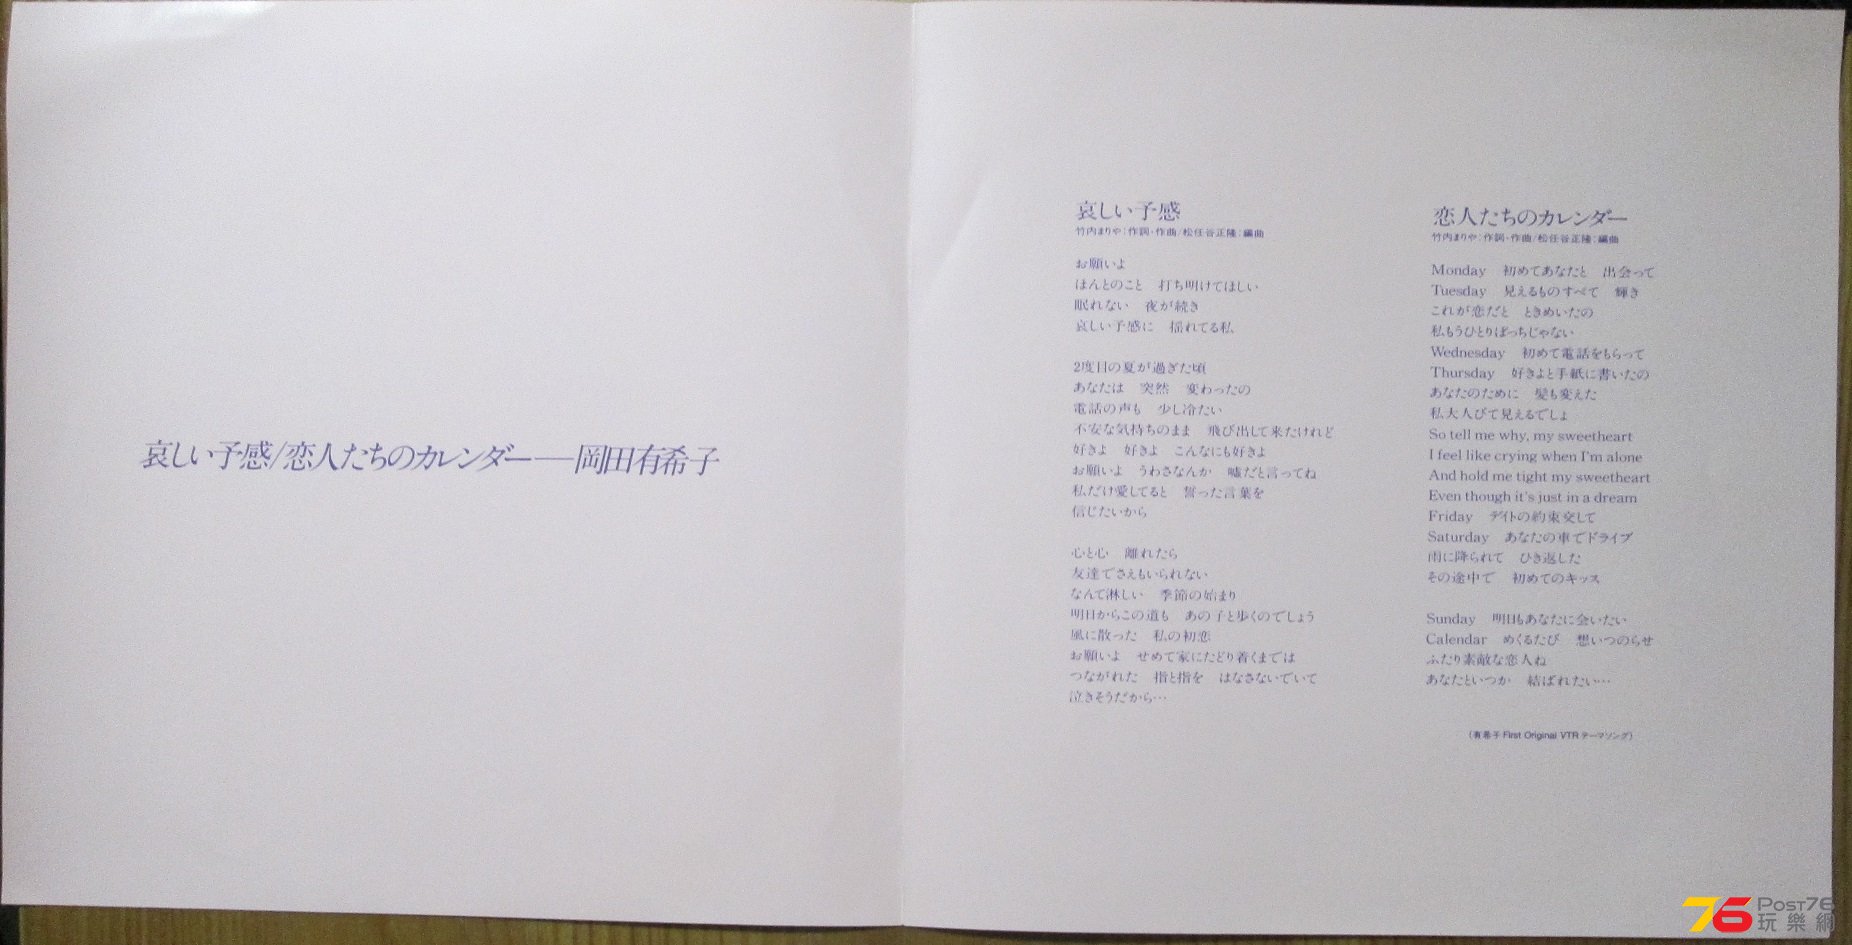 哀しい予感/恋人たちのカレンダー──岡田有希子
哀しい予感
竹内まりや:作詞・作曲/松任谷正隆:編曲
お願いよ
ほんとのこと　打ち明けてほしい
眠れない　夜が続き
哀しい予感に　揺れてる私
2度目の夏が過ぎた頃
あなたは　突然　変わったの
電話の声も　少し冷たい
不安な気持ちのまま　飛び出して来たけれど
好きよ　好きよ　こんなにも好きよ
お願いよ　うわさなんか　嘘だと言ってね
私だけ愛してると　誓った言葉を
信じたいから
心と心　離れたら
友達でさえもいられない
なんて淋しい　季節の始まり
明日からこの道も　あの子と歩くのでしょう
風に散った　私の初恋
お願いよ　せめて家にたどり着くまでは
つながれた　指と指を　はなさないでいて
泣きそうだから…
恋人たちのカレンダー
竹内まりや:作詞・作曲/松任谷正隆:編曲
Monday　初めてあなたと　出会って
Tuesday　見えるものすべて　輝き
これが恋だと　ときめいたの
私もうひとりぼっちじゃない
Wednesday　初めて電話をもらって
Thursday　好きよと手紙に書いたの
あなたのために　髪も変えた
私大人びて見えるでしょ
So tell me why, my sweetheart
I feel like crying when I'm alone
And hold me tight my sweetheart
Even though it's just in a dream
Friday　デイトの約束交して
Saturday　あなたの車でドライブ
雨に降られて　ひき返した
その途中で　初めてのキッス
Sunday　明日もあなたに会いたい
Calendar　めくるたび　想いつのらせ
ふたり素敵な恋人ね
あなたといつか　結ばれたい…
(有希子 First Original VTR テーマソング)
76 POST76
玩樂網